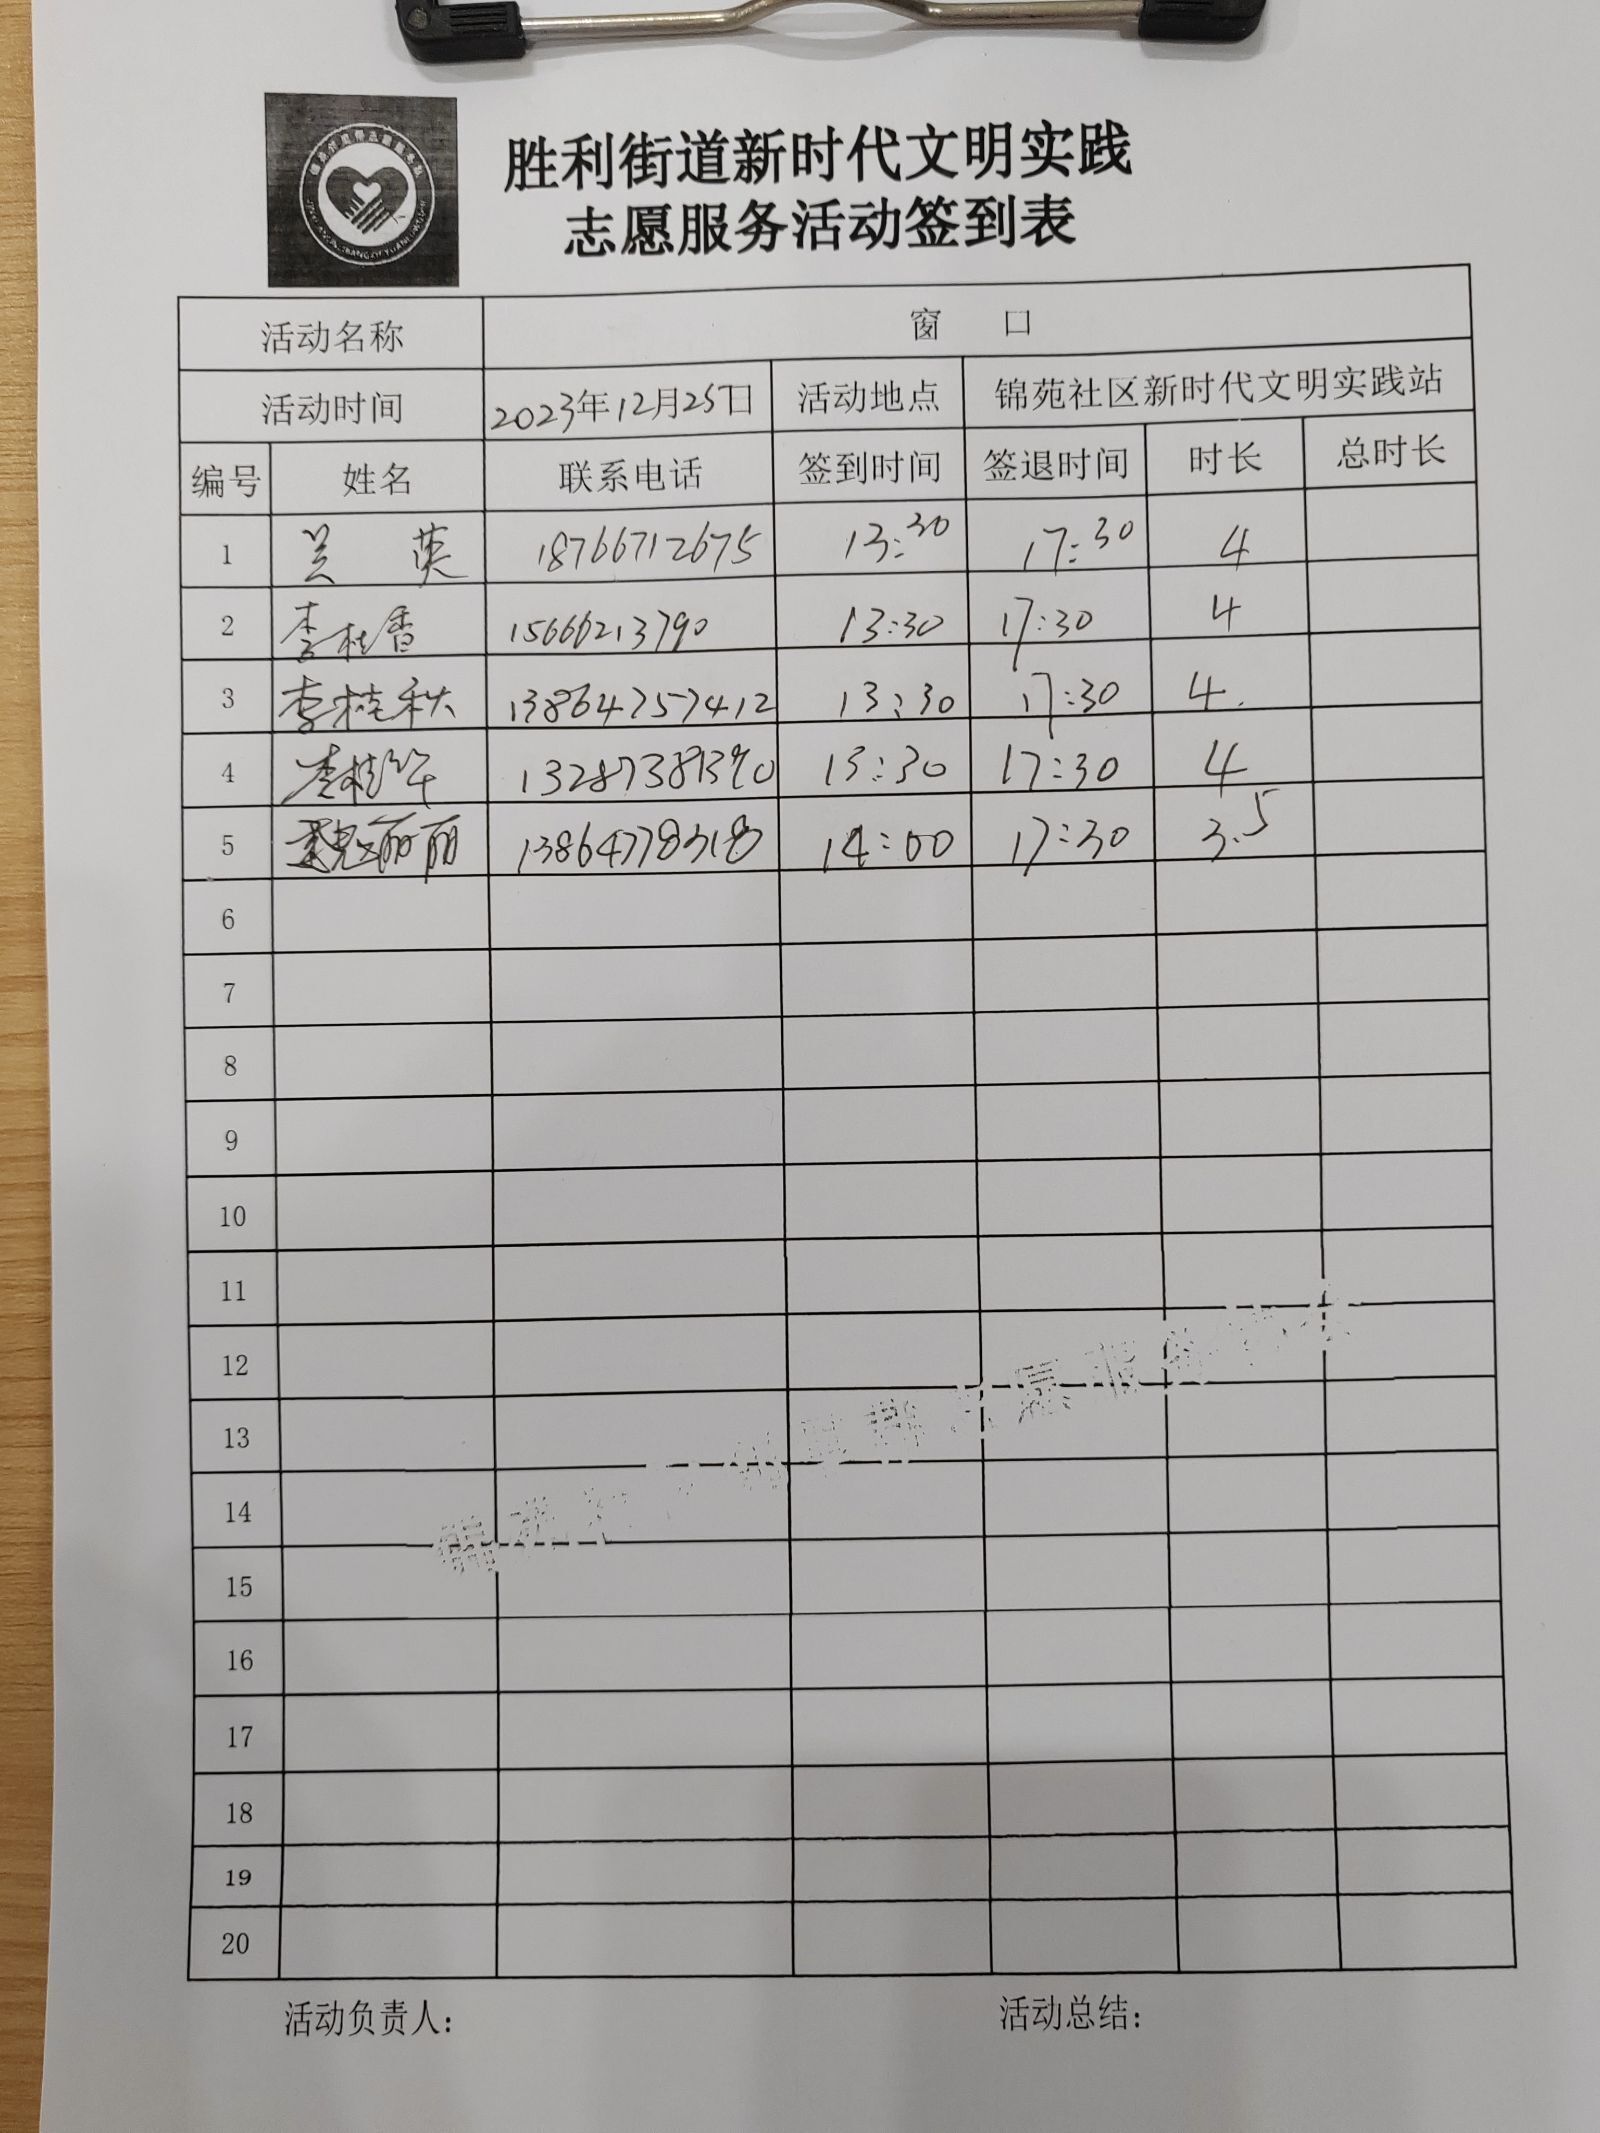 胜利街道新时代文明实践
志愿服务活动签到表
活动名称 窗 口
活动时间 2023年12月25日 活动地点 锦苑社区新时代文明实践站
编号 姓名 联系电话 签到时间 签退时间 时长 总时长
1 兰 英 18766712675 13:30 17:30 4
2 李桂香 15666213790 13:30 17:30 4
3 李桂秋 13864757412 13:30 17:30 4.
4 李桂华 13287381390 13:30 17:30 4
5 魏丽丽 13864778318 14:00 17:30 3.5
6
7
8
9
10
11
12
13
14
15
16
17
18
19
20
活动负责人: 活动总结: